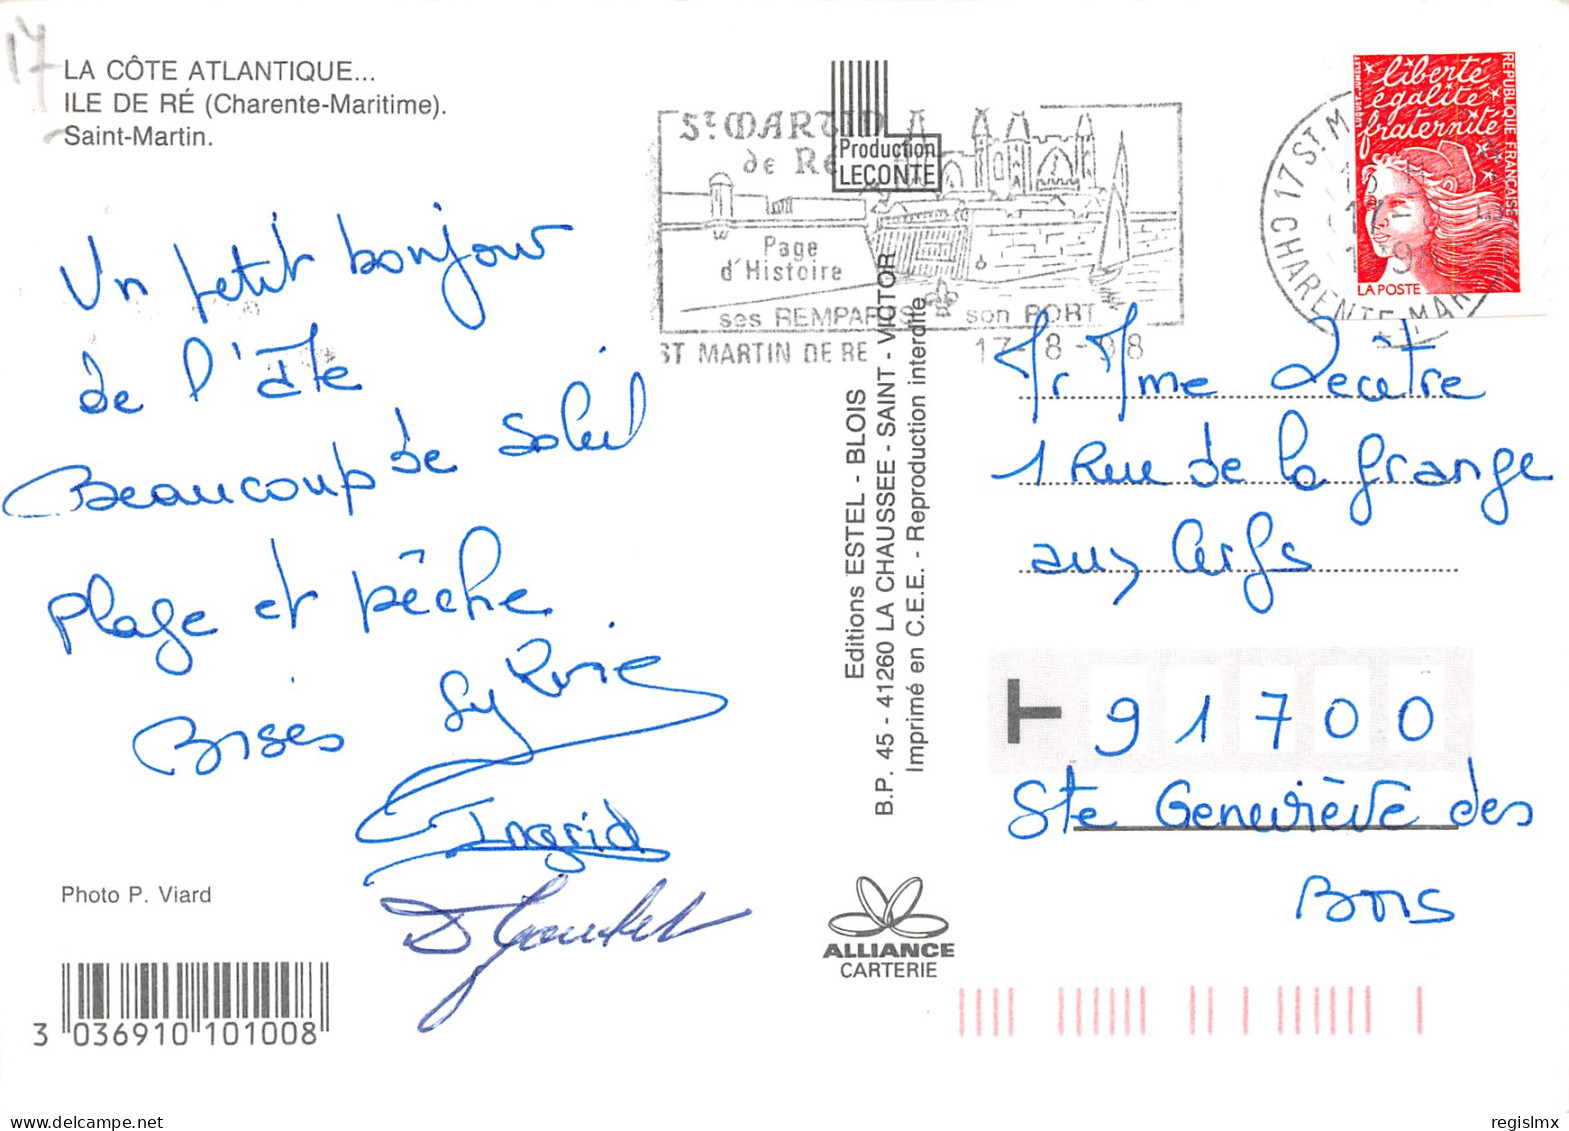 17
LA CÔTE ATLANTIQUE...
ILE DE RÉ (Charente-Maritime).
Saint-Martin.
Un petit bonjour
de l'été
Beaucoup de soleil
plage et pêche
Bises Sylvie
Ingrid
Photo P. Viard
3 036910 101008
St MARTIN
de Ré
Page
d'Histoire
ses REMPARTS son PORT
ST MARTIN DE RE 17-8-98
Production
LECONTE
Editions ESTEL - BLOIS
B.P. 45 - 41260 LA CHAUSSEE - SAINT - VICTOR
Imprimé en C.E.E. - Reproduction interdite
ALLIANCE
CARTERIE
17 ST M
CHARENTE MAR
liberté
égalité
fraternité
REPUBLIQUE FRANÇAISE
LA POSTE
Mr Mme Lecitre
1 Rue de la grange
aux Cerfs
91700
Ste Geneviève des
Bois
regislmx